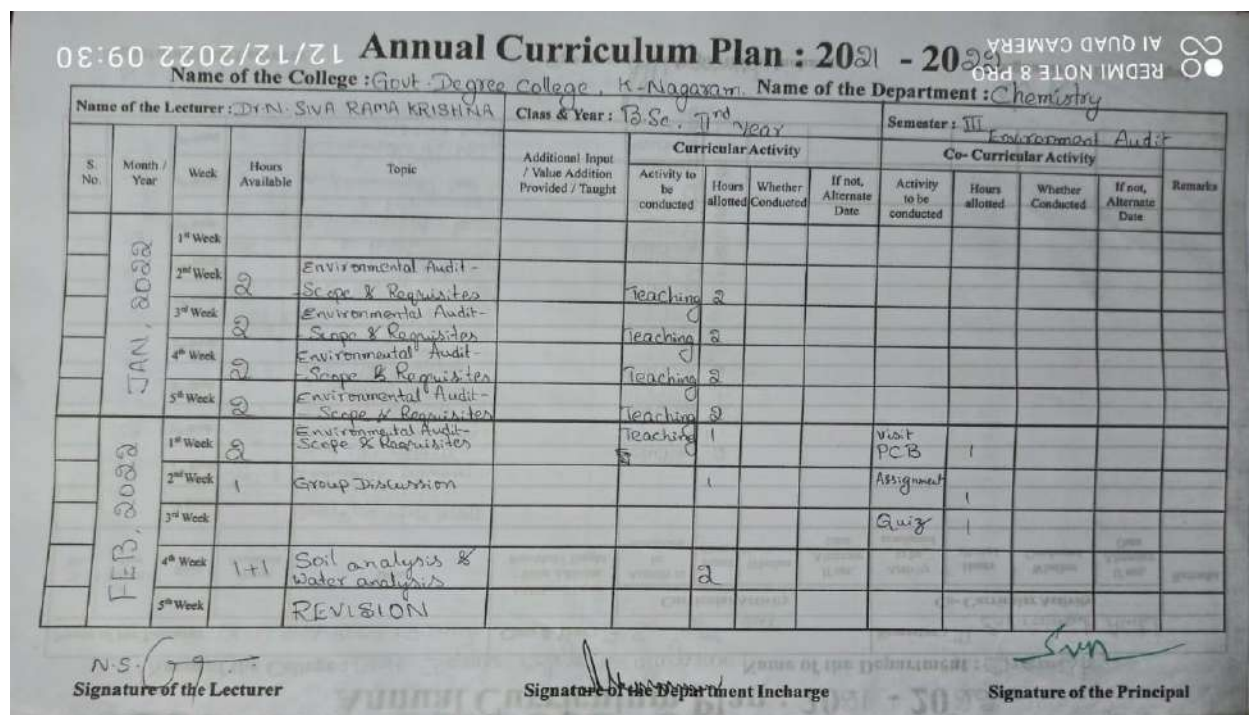 12/12/2022 09:30
REDMI NOTE 8 PRO
AI QUAD CAMERA
Annual Curriculum Plan : 2021 - 2022
Name of the College : Govt. Degree College, K-Nagaram. Name of the Department : Chemistry
Name of the Lecturer : Dr. N. SIVA RAMA KRISHNA Class & Year : B.Sc. IInd year Semester : III
Environment Audit
S. No. Month / Year Week Hours Available Topic Additional Input / Value Addition Provided / Taught Curricular Activity Co- Curricular Activity Remarks
Activity to be conducted Hours allotted Whether Conducted If not, Alternate Date Activity to be conducted Hours allotted Whether Conducted If not, Alternate Date
JAN, 2022
1st Week
2nd Week 2 Environmental Audit -
Scope & Requisites Teaching 2
3rd Week 2 Environmental Audit-
- Scope & Requisites Teaching 2
4th Week 2 Environmental Audit-
- Scope & Requisites Teaching 2
5th Week 2 Environmental Audit-
- Scope & Requisites Teaching 2
FEB, 2022
1st Week 2 Environmental Audit-
Scope & Requisites Teaching 1 Visit
PCB 1
2nd Week 1 Group Discussion 1 Assignment 1
3rd Week Quiz 1
4th Week 1+1 Soil analysis &
Water analysis 2
5th Week REVISION
N.S.
Signature of the Lecturer Signature of the Department Incharge Signature of the Principal